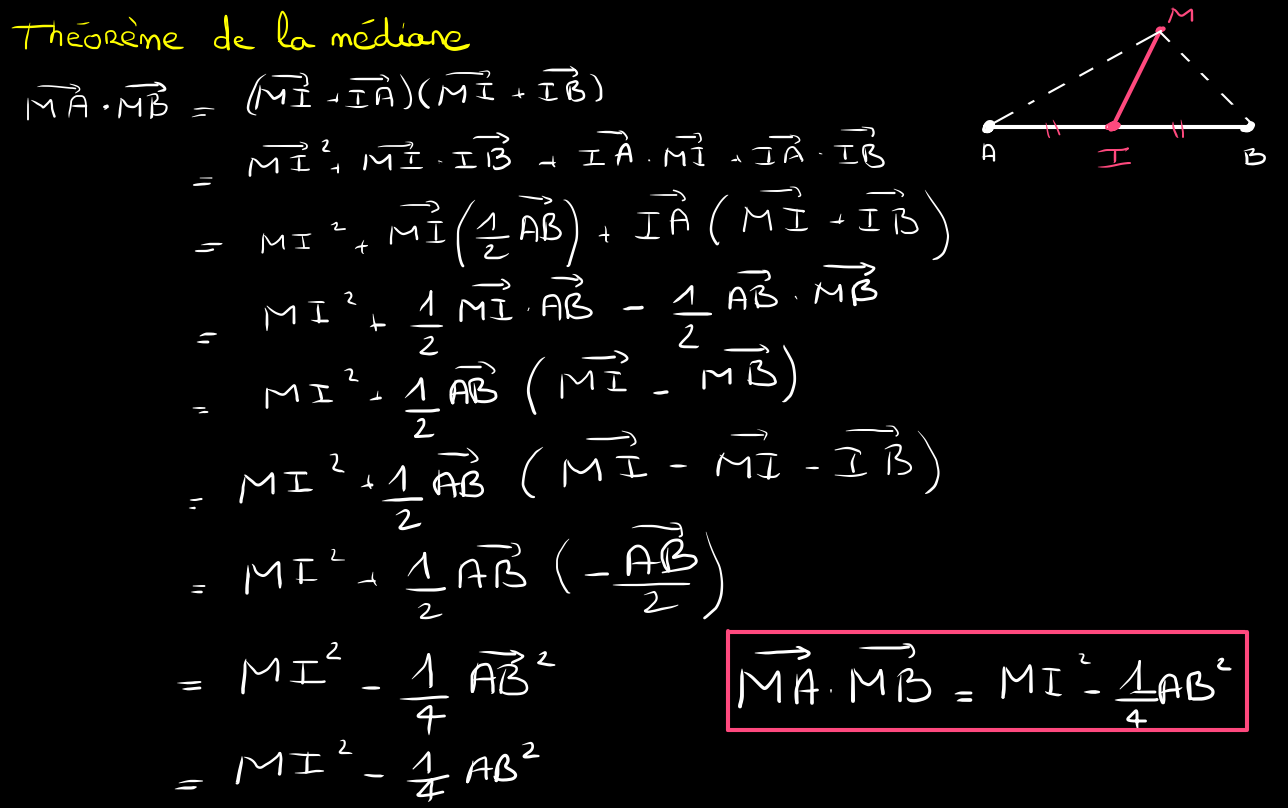 Théorème de la médiane
M
A I B
$\overrightarrow{MA} \cdot \overrightarrow{MB} = (\overrightarrow{MI} + \overrightarrow{IA})(\overrightarrow{MI} + \overrightarrow{IB})$
$= \overrightarrow{MI}^2 + \overrightarrow{MI} \cdot \overrightarrow{IB} + \overrightarrow{IA} \cdot \overrightarrow{MI} + \overrightarrow{IA} \cdot \overrightarrow{IB}$
$= MI^2 + \overrightarrow{MI} \left(\frac{1}{2} \overrightarrow{AB}\right) + \overrightarrow{IA} (\overrightarrow{MI} + \overrightarrow{IB})$
$= MI^2 + \frac{1}{2} \overrightarrow{MI} \cdot \overrightarrow{AB} - \frac{1}{2} \overrightarrow{AB} \cdot \overrightarrow{MB}$
$= MI^2 + \frac{1}{2} \overrightarrow{AB} (\overrightarrow{MI} - \overrightarrow{MB})$
$= MI^2 + \frac{1}{2} \overrightarrow{AB} (\overrightarrow{MI} - \overrightarrow{MI} - \overrightarrow{IB})$
$= MI^2 + \frac{1}{2} \overrightarrow{AB} \left(-\frac{\overrightarrow{AB}}{2}\right)$
$= MI^2 - \frac{1}{4} \overrightarrow{AB}^2$
$= MI^2 - \frac{1}{4} AB^2$
$\overrightarrow{MA} \cdot \overrightarrow{MB} = MI^2 - \frac{1}{4} AB^2$